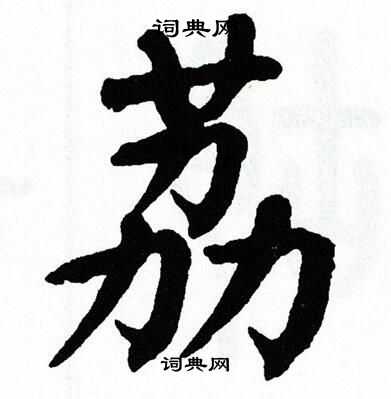 词典网
荔
词典网